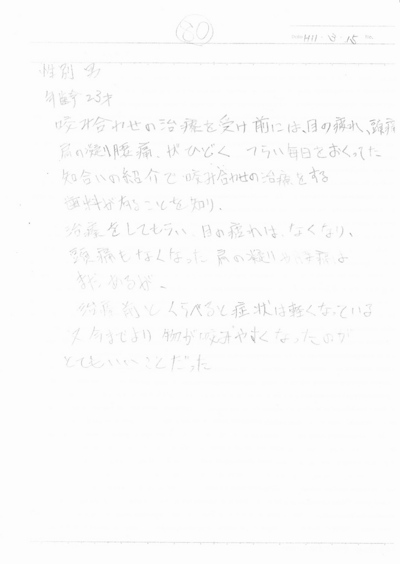 20
H11
性別 男
年齢 23才
咬み合わせの治療を受け前には、目の疲れ、頭痛
肩の凝り腰痛、がひどく つらい毎日をおくってた
知合いの紹介で 咬み合わせの治療をする
歯科があることを知り、
治療をしてもらい、目の疲れは、なくなり、
頭痛もなくなった 肩の凝り
あるが、
治療前とくらべると症状は軽くなっている
又今までより物が咬みやすくなったのが
とてもいいことだった